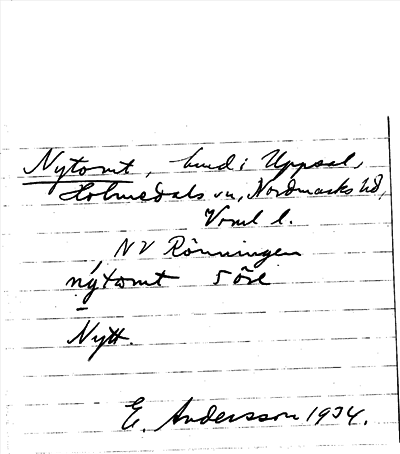 Nytomt, lmd i Uppsal,
Holmedals sn, Nordmarks hd,
Vrml l.
NV Rönningen
nýtomt 5 öre
Nytt.
E. Andersson 1934.